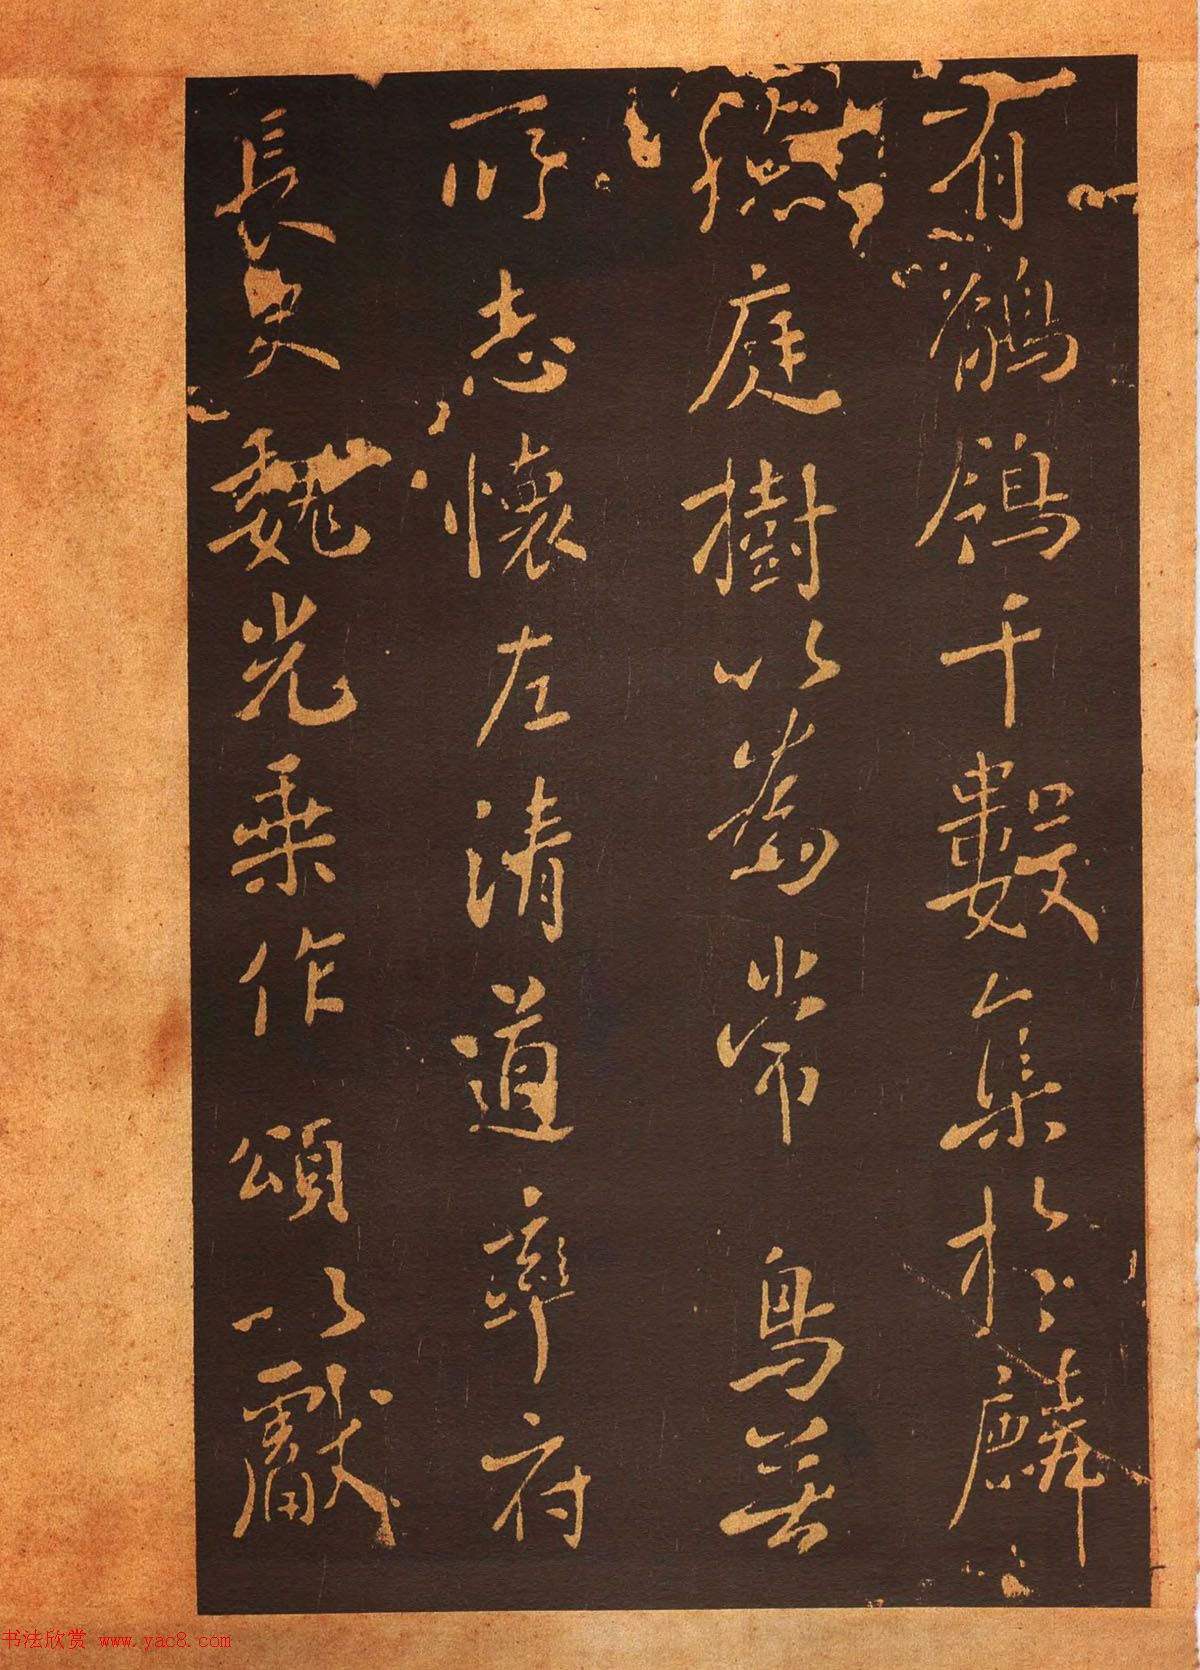 有鶺鴒千數集於麟
德庭樹以為常鳥無
所志懷左清道率府
長史魏光乘作頌以獻
书法欣赏 www.yac8.com